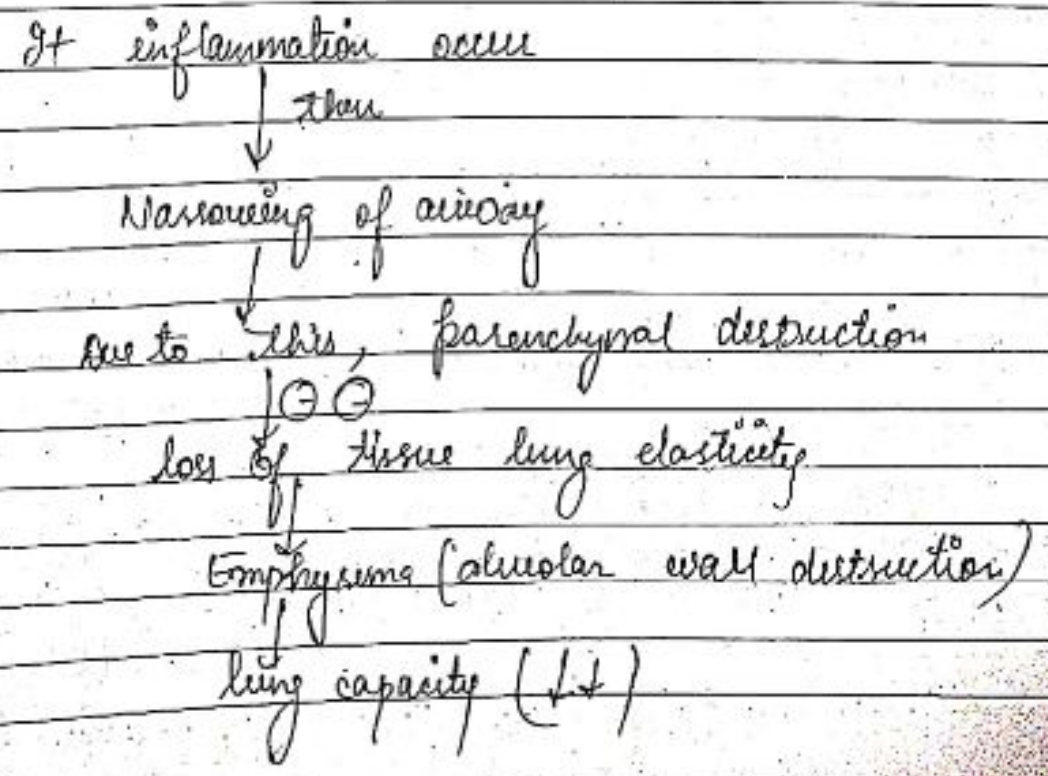 If inflammation occur
↓ then
Narrowing of airway
↓
Due to this, parenchymal destruction
↓ ⊖ ⊖
loss of tissue lung elasticity
↓
Emphysema (alveolar wall destruction)
↓
lung capacity (↓↓)